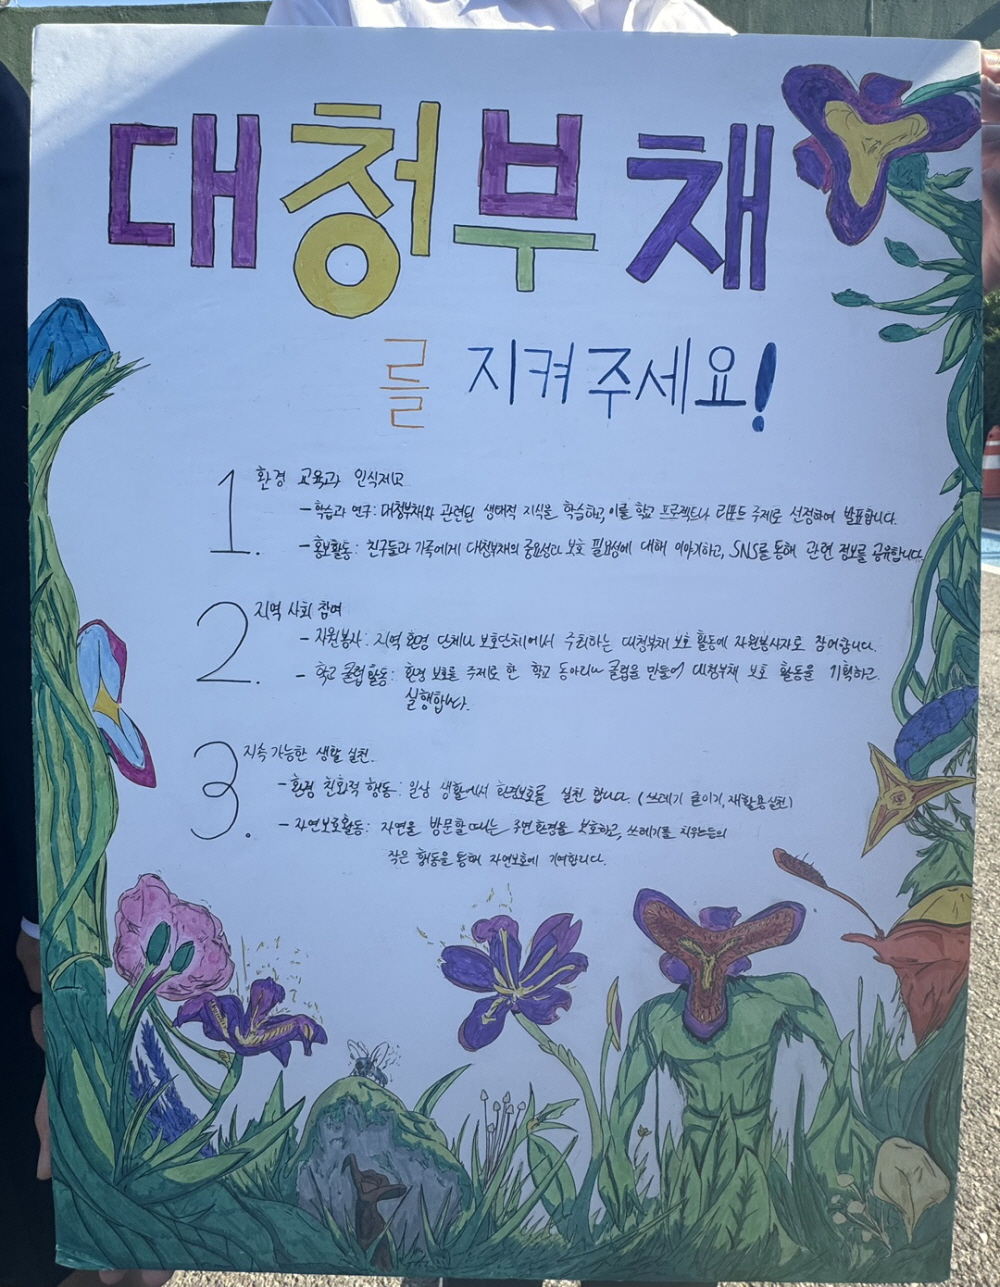 대청부채
를 지켜주세요!
1. 환경 교육과 인식제고
- 학습과 연구: 대청부채와 관련된 생태적 지식을 학습하고, 이를 학교 프로젝트나 리포트 주제로 선정하여 발표합니다.
- 홍보활동: 친구들과 가족에게 대청부채의 중요성과 보호 필요성에 대해 이야기하고, SNS를 통해 관련 정보를 공유합니다.
2. 지역 사회 참여
- 자원봉사: 지역 환경 단체나 보호단체에서 주최하는 대청부채 보호 활동에 자원봉사자로 참여합니다.
- 학교 클럽 활동: 환경 보호를 주제로 한 학교 동아리나 클럽을 만들어 대청부채 보호 활동을 기획하고
실행합니다.
3. 지속 가능한 생활 실천.
- 환경 친화적 행동: 일상 생활에서 환경보호를 실천 합니다. (쓰레기 줄이기, 재활용실천)
- 자연보호활동: 자연을 방문할 때는 주변환경을 보호하고, 쓰레기를 치우는등의
작은 행동을 통해 자연보호에 기여합니다.